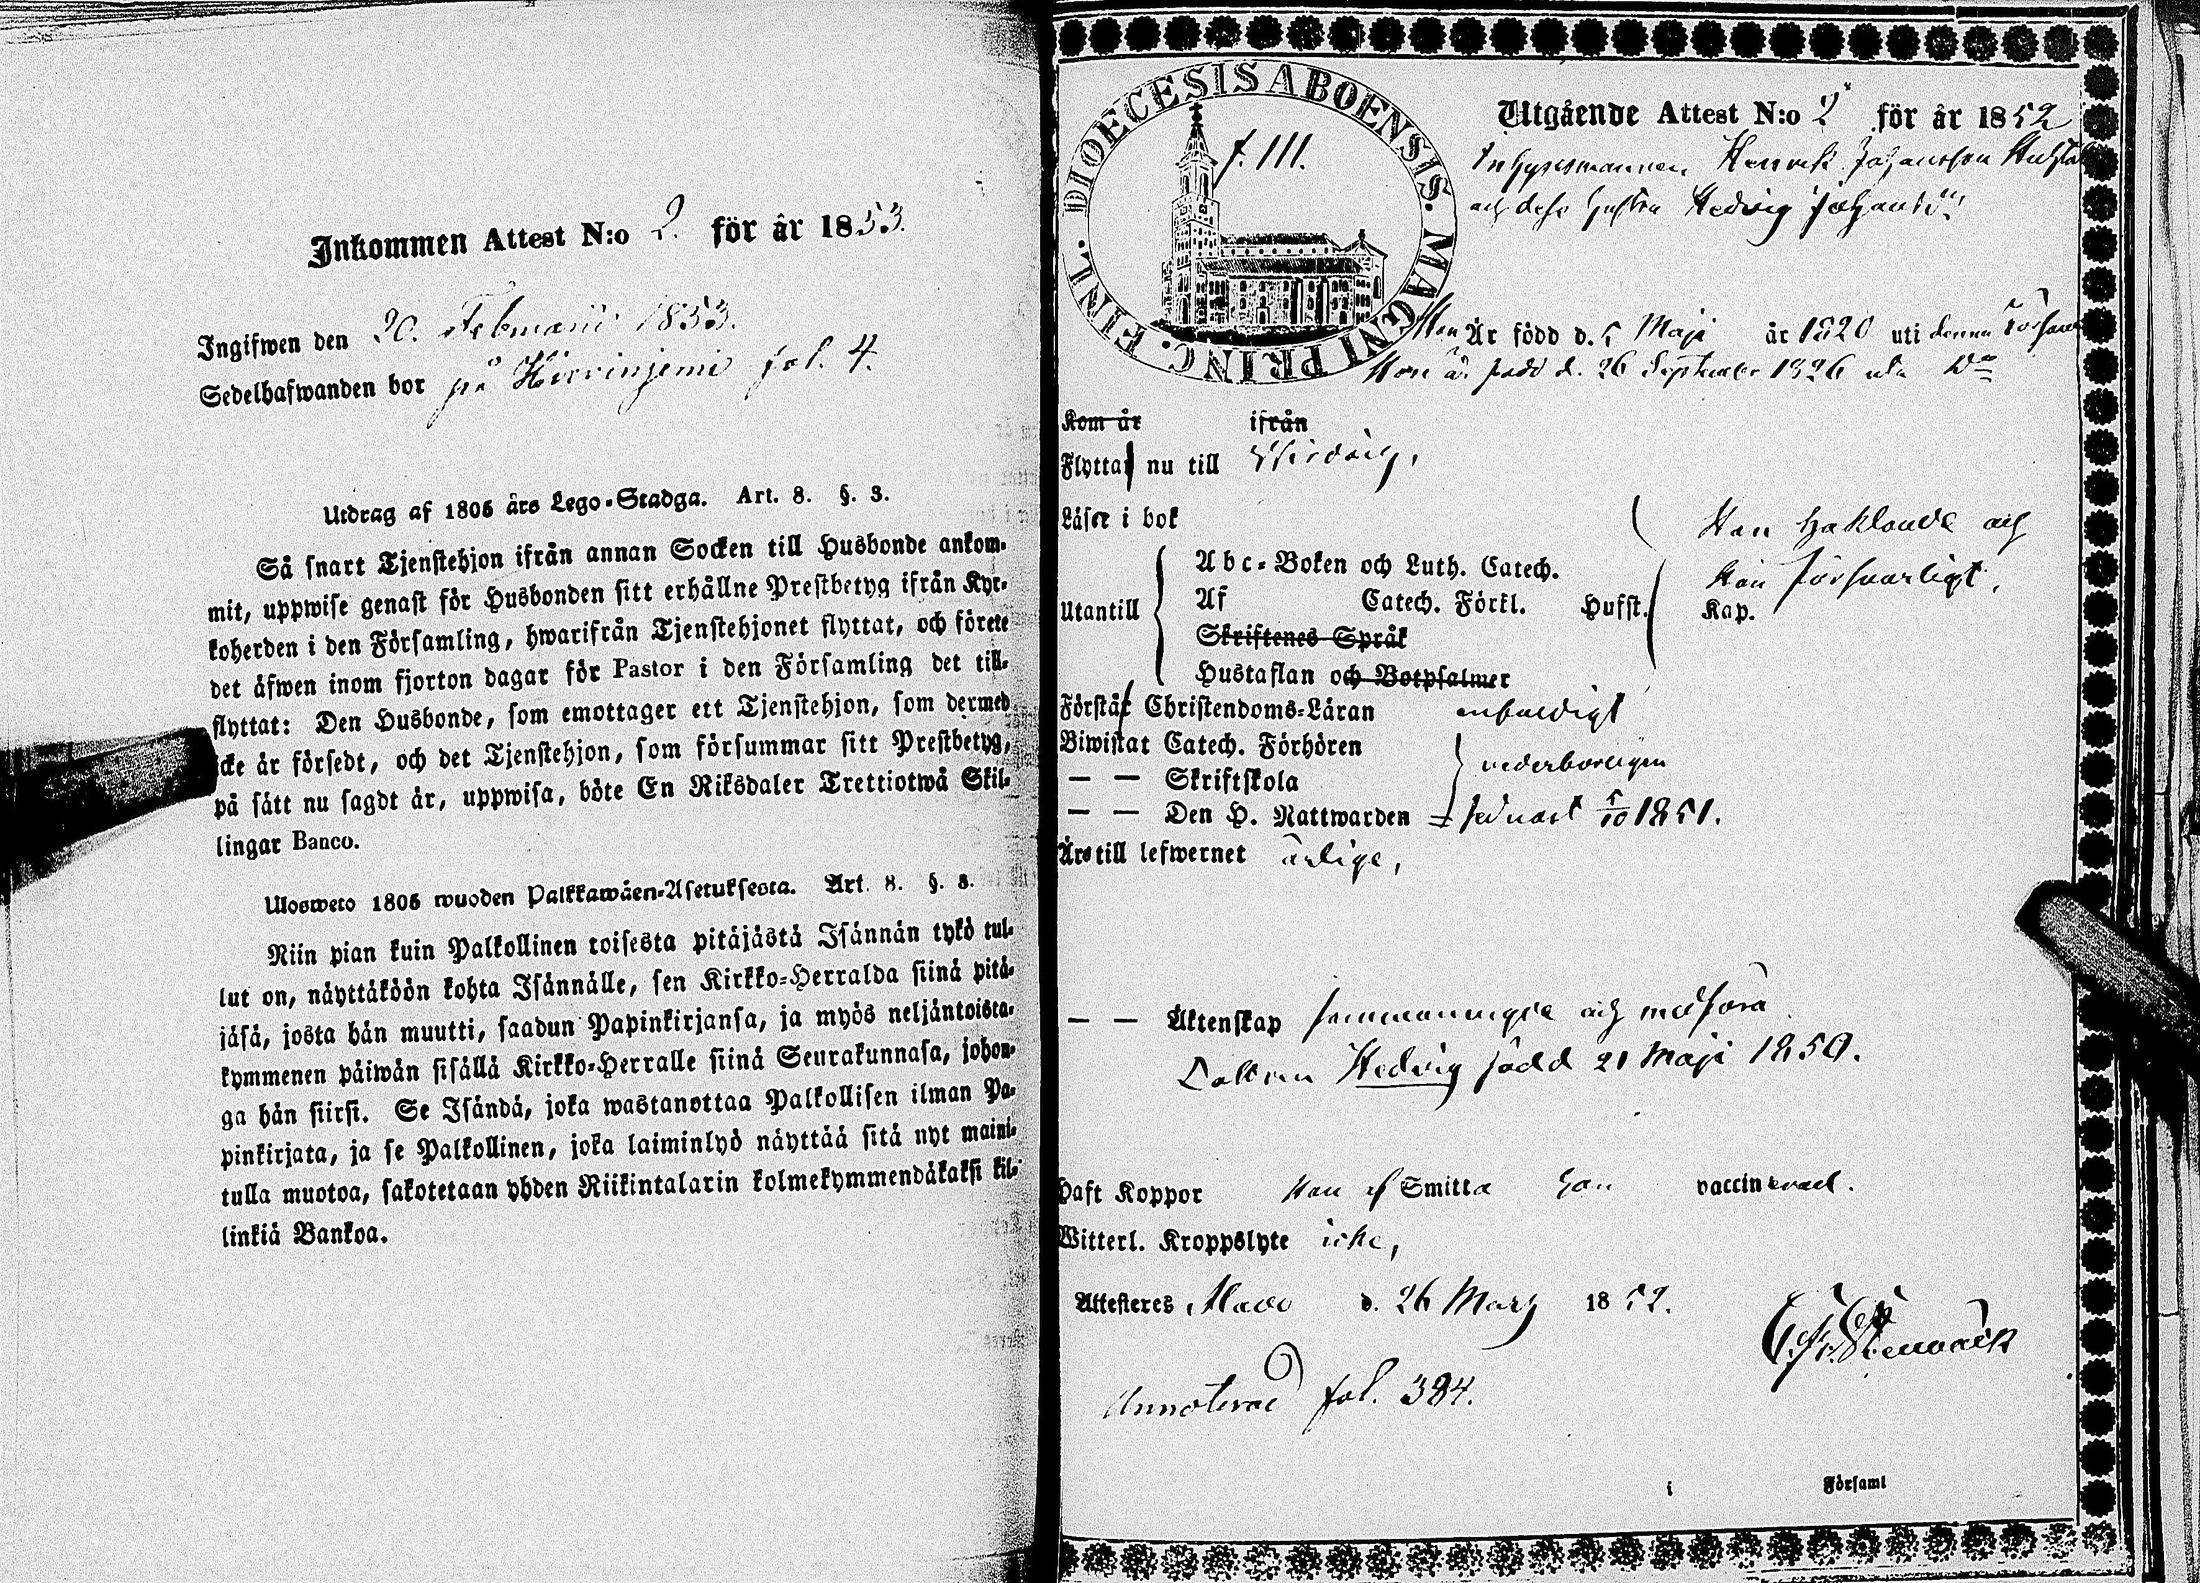 Inkommen Attest N:o 2. för år 1853.
Ingifwen den 20. Februarii 1853.
Sedelhafwanden bor på Hirvinjemi fol. 4.
Utdrag af 1805 års Lego-Stadga. Art. 8. §. 3.
Så snart Tjenstehjon ifrån annan Socken till Husbonde ankom-
mit, uppwise genast för Husbonden sitt erhållne Prestbetyg ifrån Kyr-
koherden i den Församling, hwarifrån Tjenstehjonet flyttat, och förete
det äfwen inom fjorton dagar för Pastor i den Församling det till-
flyttat: Den Husbonde, som emottager ett Tjenstehjon, som dermed
icke är försedt, och det Tjenstehjon, som försummar sitt Prestbetyg,
på sätt nu sagdt är, uppwisa, böte En Riksdaler Trettiotwå Skil-
lingar Banco.
Ulosweto 1805 wuoden Palkkawäen-Asetuksesta. Art. 8. §. 3.
Niin pian kuin Palkollinen toisesta pitäjästä Isännän tykö tul-
lut on, näyttäköön kohta Isännälle, sen Kirkko-Herralda siinä pitä-
jäsä, josta hän muutti, saadun Papinkirjansa, ja myös neljäntoista-
kymmenen päiwän sisällä Kirkko-Herralle siinä Seurakunnasa, johon-
ga hän siirsi. Se Isändä, joka wastanottaa Palkollisen ilman Pa-
pinkirjata, ja se Palkollinen, joka laiminlyö näyttää sitä nyt maini-
tulla muotoa, sakotetaan yhden Riikintalarin kolmekymmendäkaksi kil-
linkiä Bankoa.
DIOECESIS ABOENSIS. MAGNI PRINC. FINL.
f. 111.
Utgående Attest N:o 2 för år 1852
Inhysesmannen Henrik Johansson
och dess hustru Hedvig Johansdr
Han Är född d. 5 Maji år 1820 uti denna Församl
Hon är född d. 26 September 1826 uti Do
Kom år ifrån
Flyttar nu till Wirdois,
Läser i bok Han hacklande och
Abc-Boken och Luth. Catech. hon försvarligt,
Utantill Af Catech. Förkl. Hufst. Kap.
Skriftenes Språk
Hustaflan och Botpsalmer
Förstår Christendoms-Läran enfaldigt
Biwistat Catech. Förhören vederbörligen
— — Skriftskola
— — Den H. Nattwarden senast 5/10 1851.
Är till lefwernet ärlige,
— — Äktenskap sammanvigde och medföra
Dottren Hedvig född 21 Maji 1850.
Haft Koppor Han af Smitta hon vaccinerad.
Witterl. Kroppslyte icke,
Attesteres Alavo d. 26 Mars 1852.
C. Fr. Stenbäck
Annoterad fol. 384.
i Församl